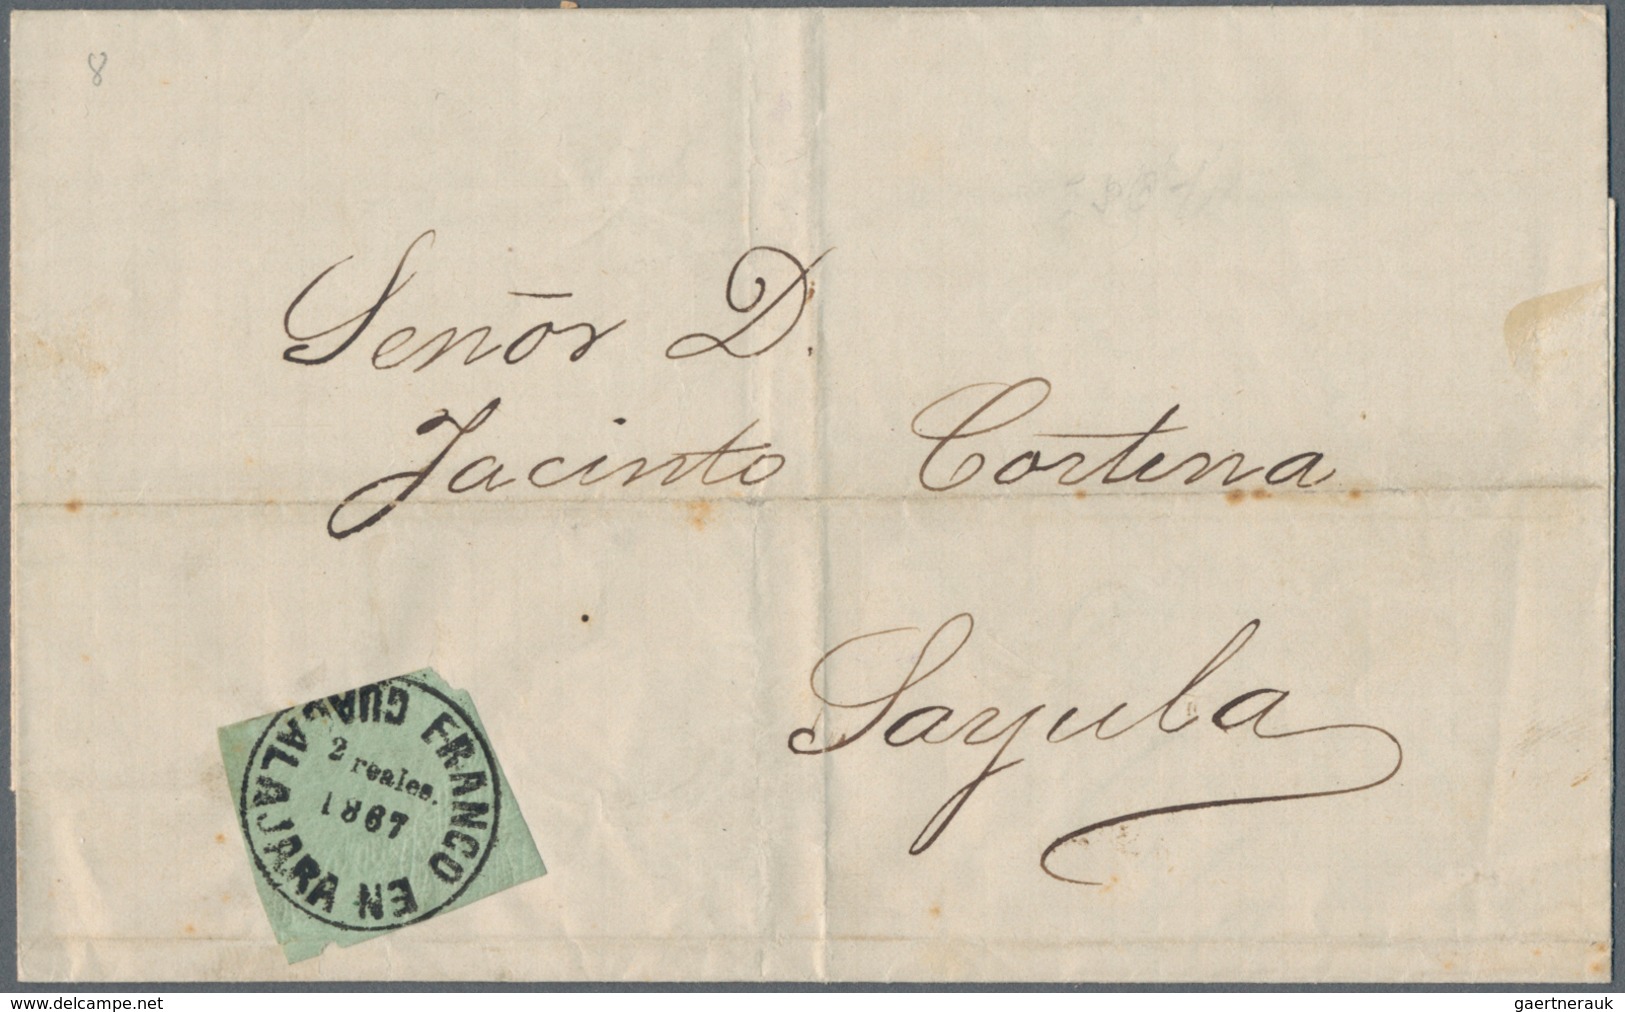 8
Señor D.
Jacinto Cortina
Sayula
FRANCO EN GUADALAJARA
2 reales.
1867
www.delcampe.net
gaertnerauk